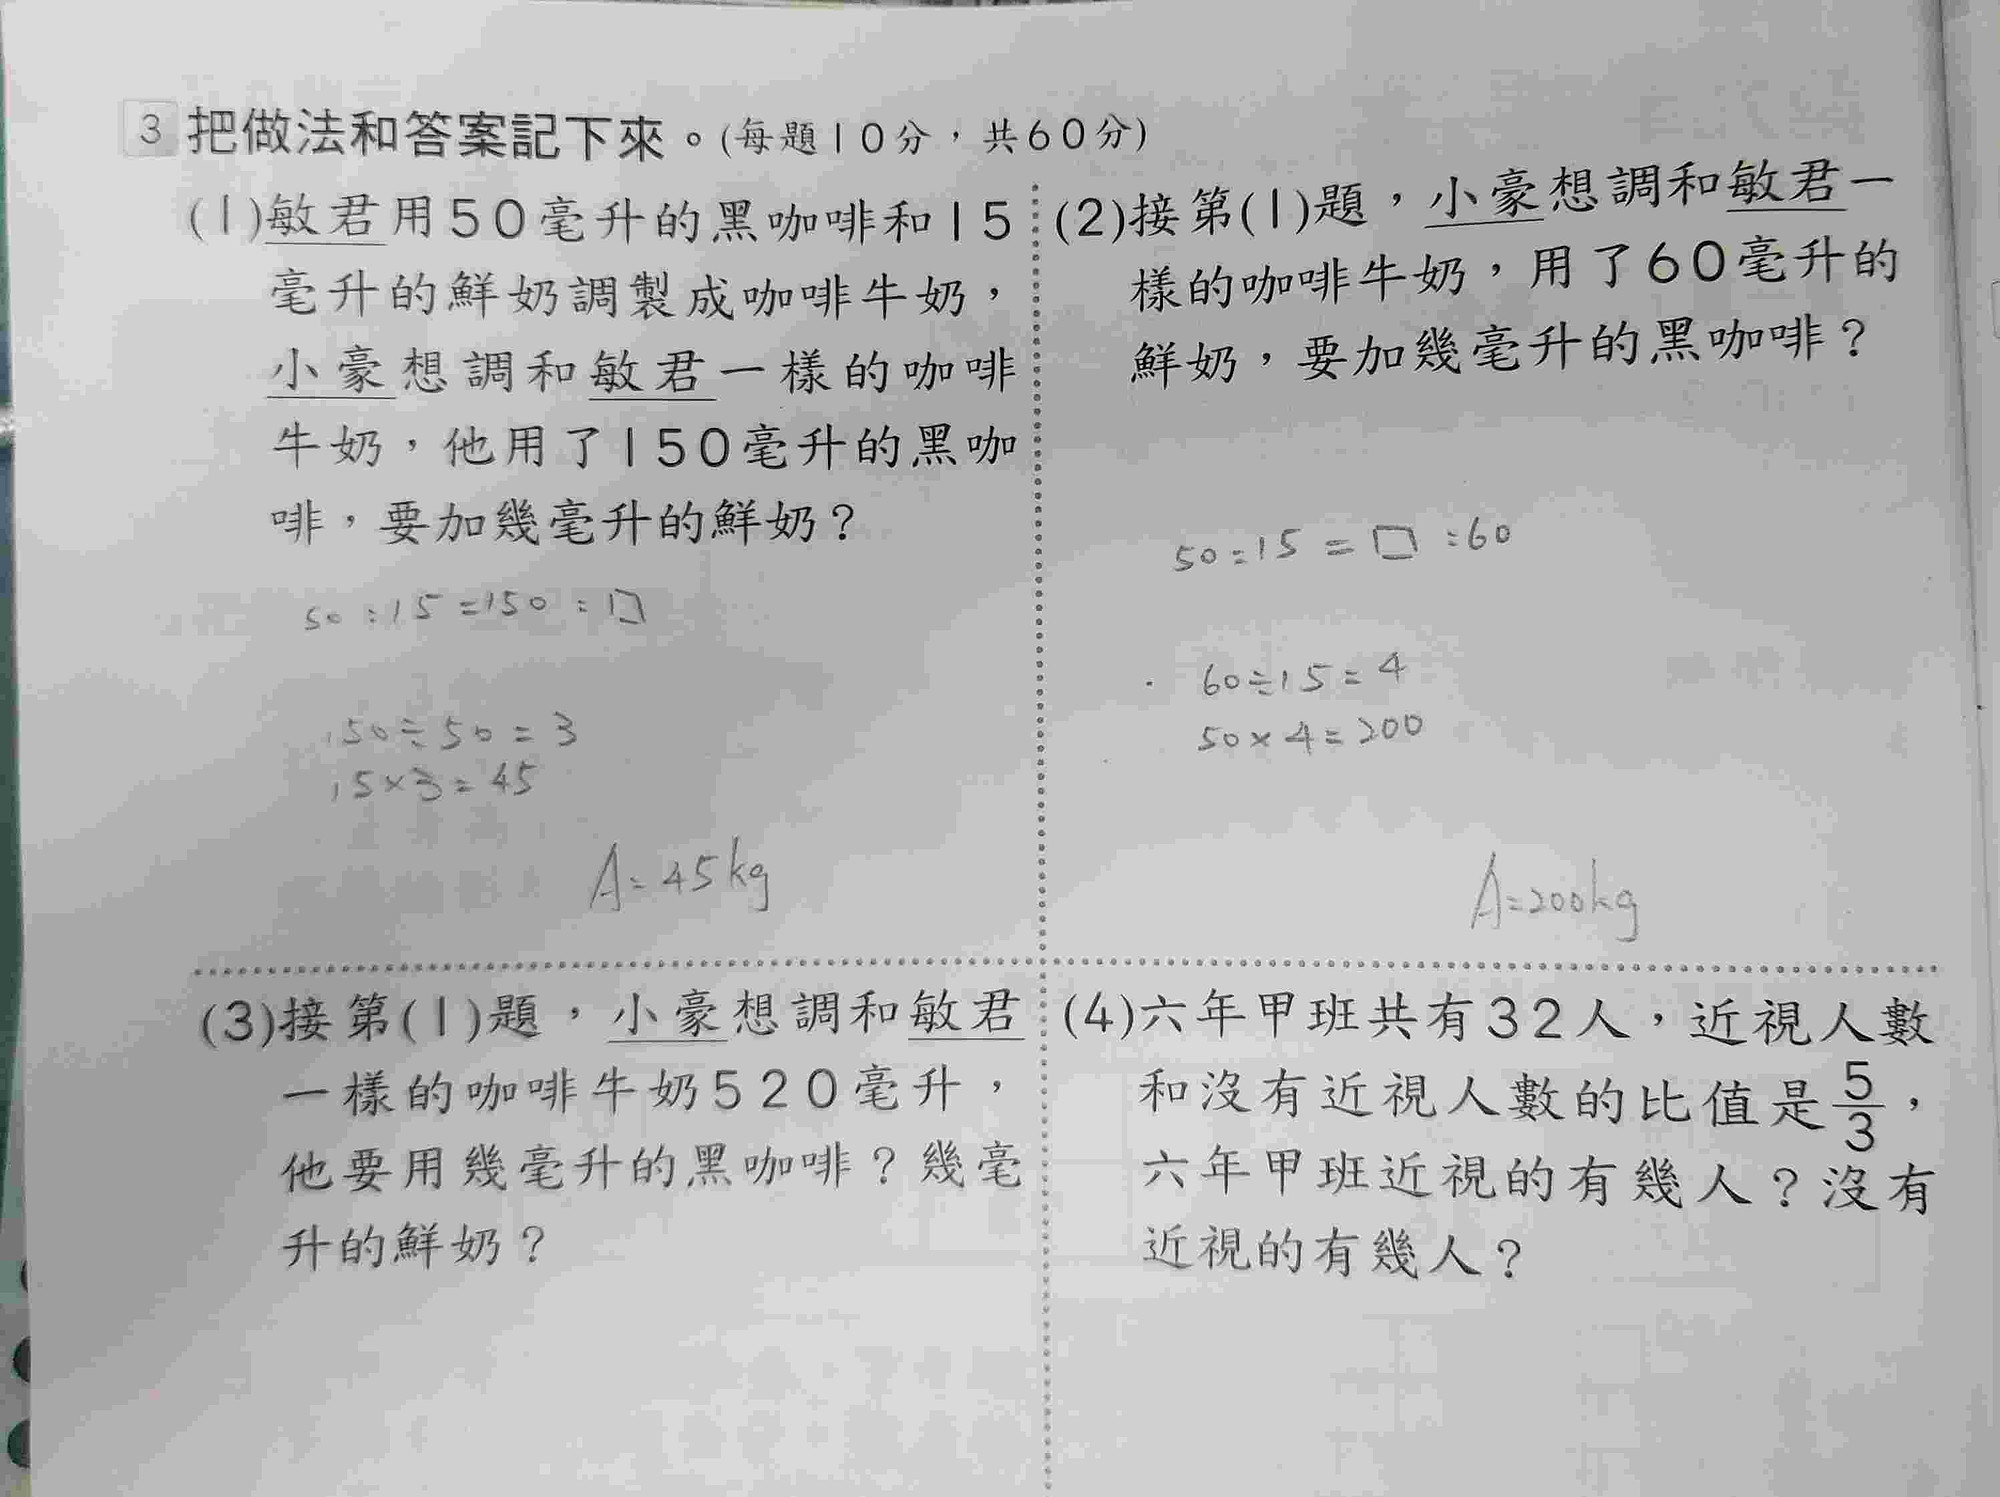 3 把做法和答案記下來。(每題10分，共60分)
(1)敏君用50毫升的黑咖啡和15
毫升的鮮奶調製成咖啡牛奶，
小豪想調和敏君一樣的咖啡
牛奶，他用了150毫升的黑咖
啡，要加幾毫升的鮮奶？
50:15=150:□
150÷50=3
15×3=45
A=45kg
(2)接第(1)題，小豪想調和敏君一
樣的咖啡牛奶，用了60毫升的
鮮奶，要加幾毫升的黑咖啡？
50:15=□:60
60÷15=4
50×4=200
A=200kg
(3)接第(1)題，小豪想調和敏君
一樣的咖啡牛奶520毫升，
他要用幾毫升的黑咖啡？幾毫
升的鮮奶？
(4)六年甲班共有32人，近視人數
和沒有近視人數的比值是5/3，
六年甲班近視的有幾人？沒有
近視的有幾人？